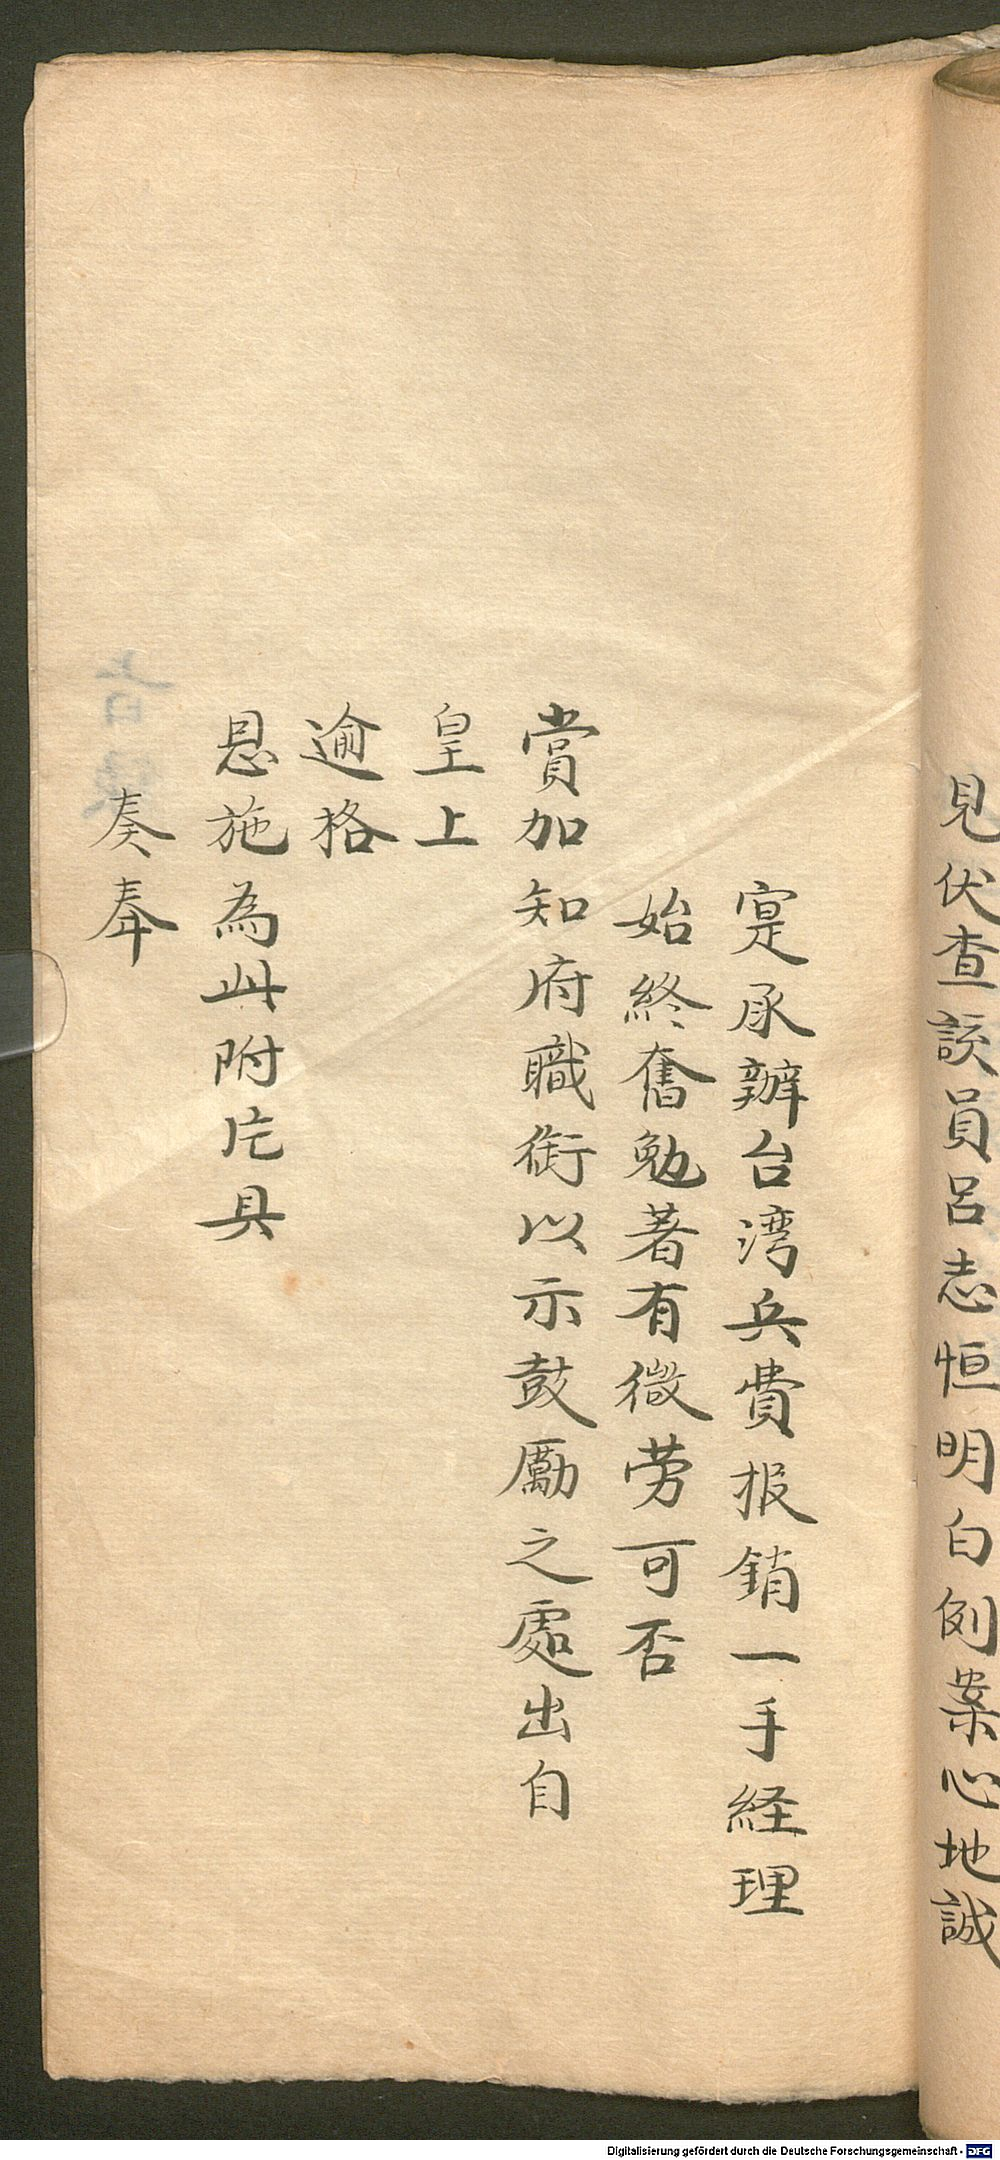 見伏查該員呂志恒明白例案心地誠
寔承辦台湾兵費报銷一手経理
始終奮勉著有微劳可否
賞加知府職銜以示鼓勵之處出自
皇上
逾格
恩施為此附片具
奏奉
Digitalisierung gefördert durch die Deutsche Forschungsgemeinschaft - DFG